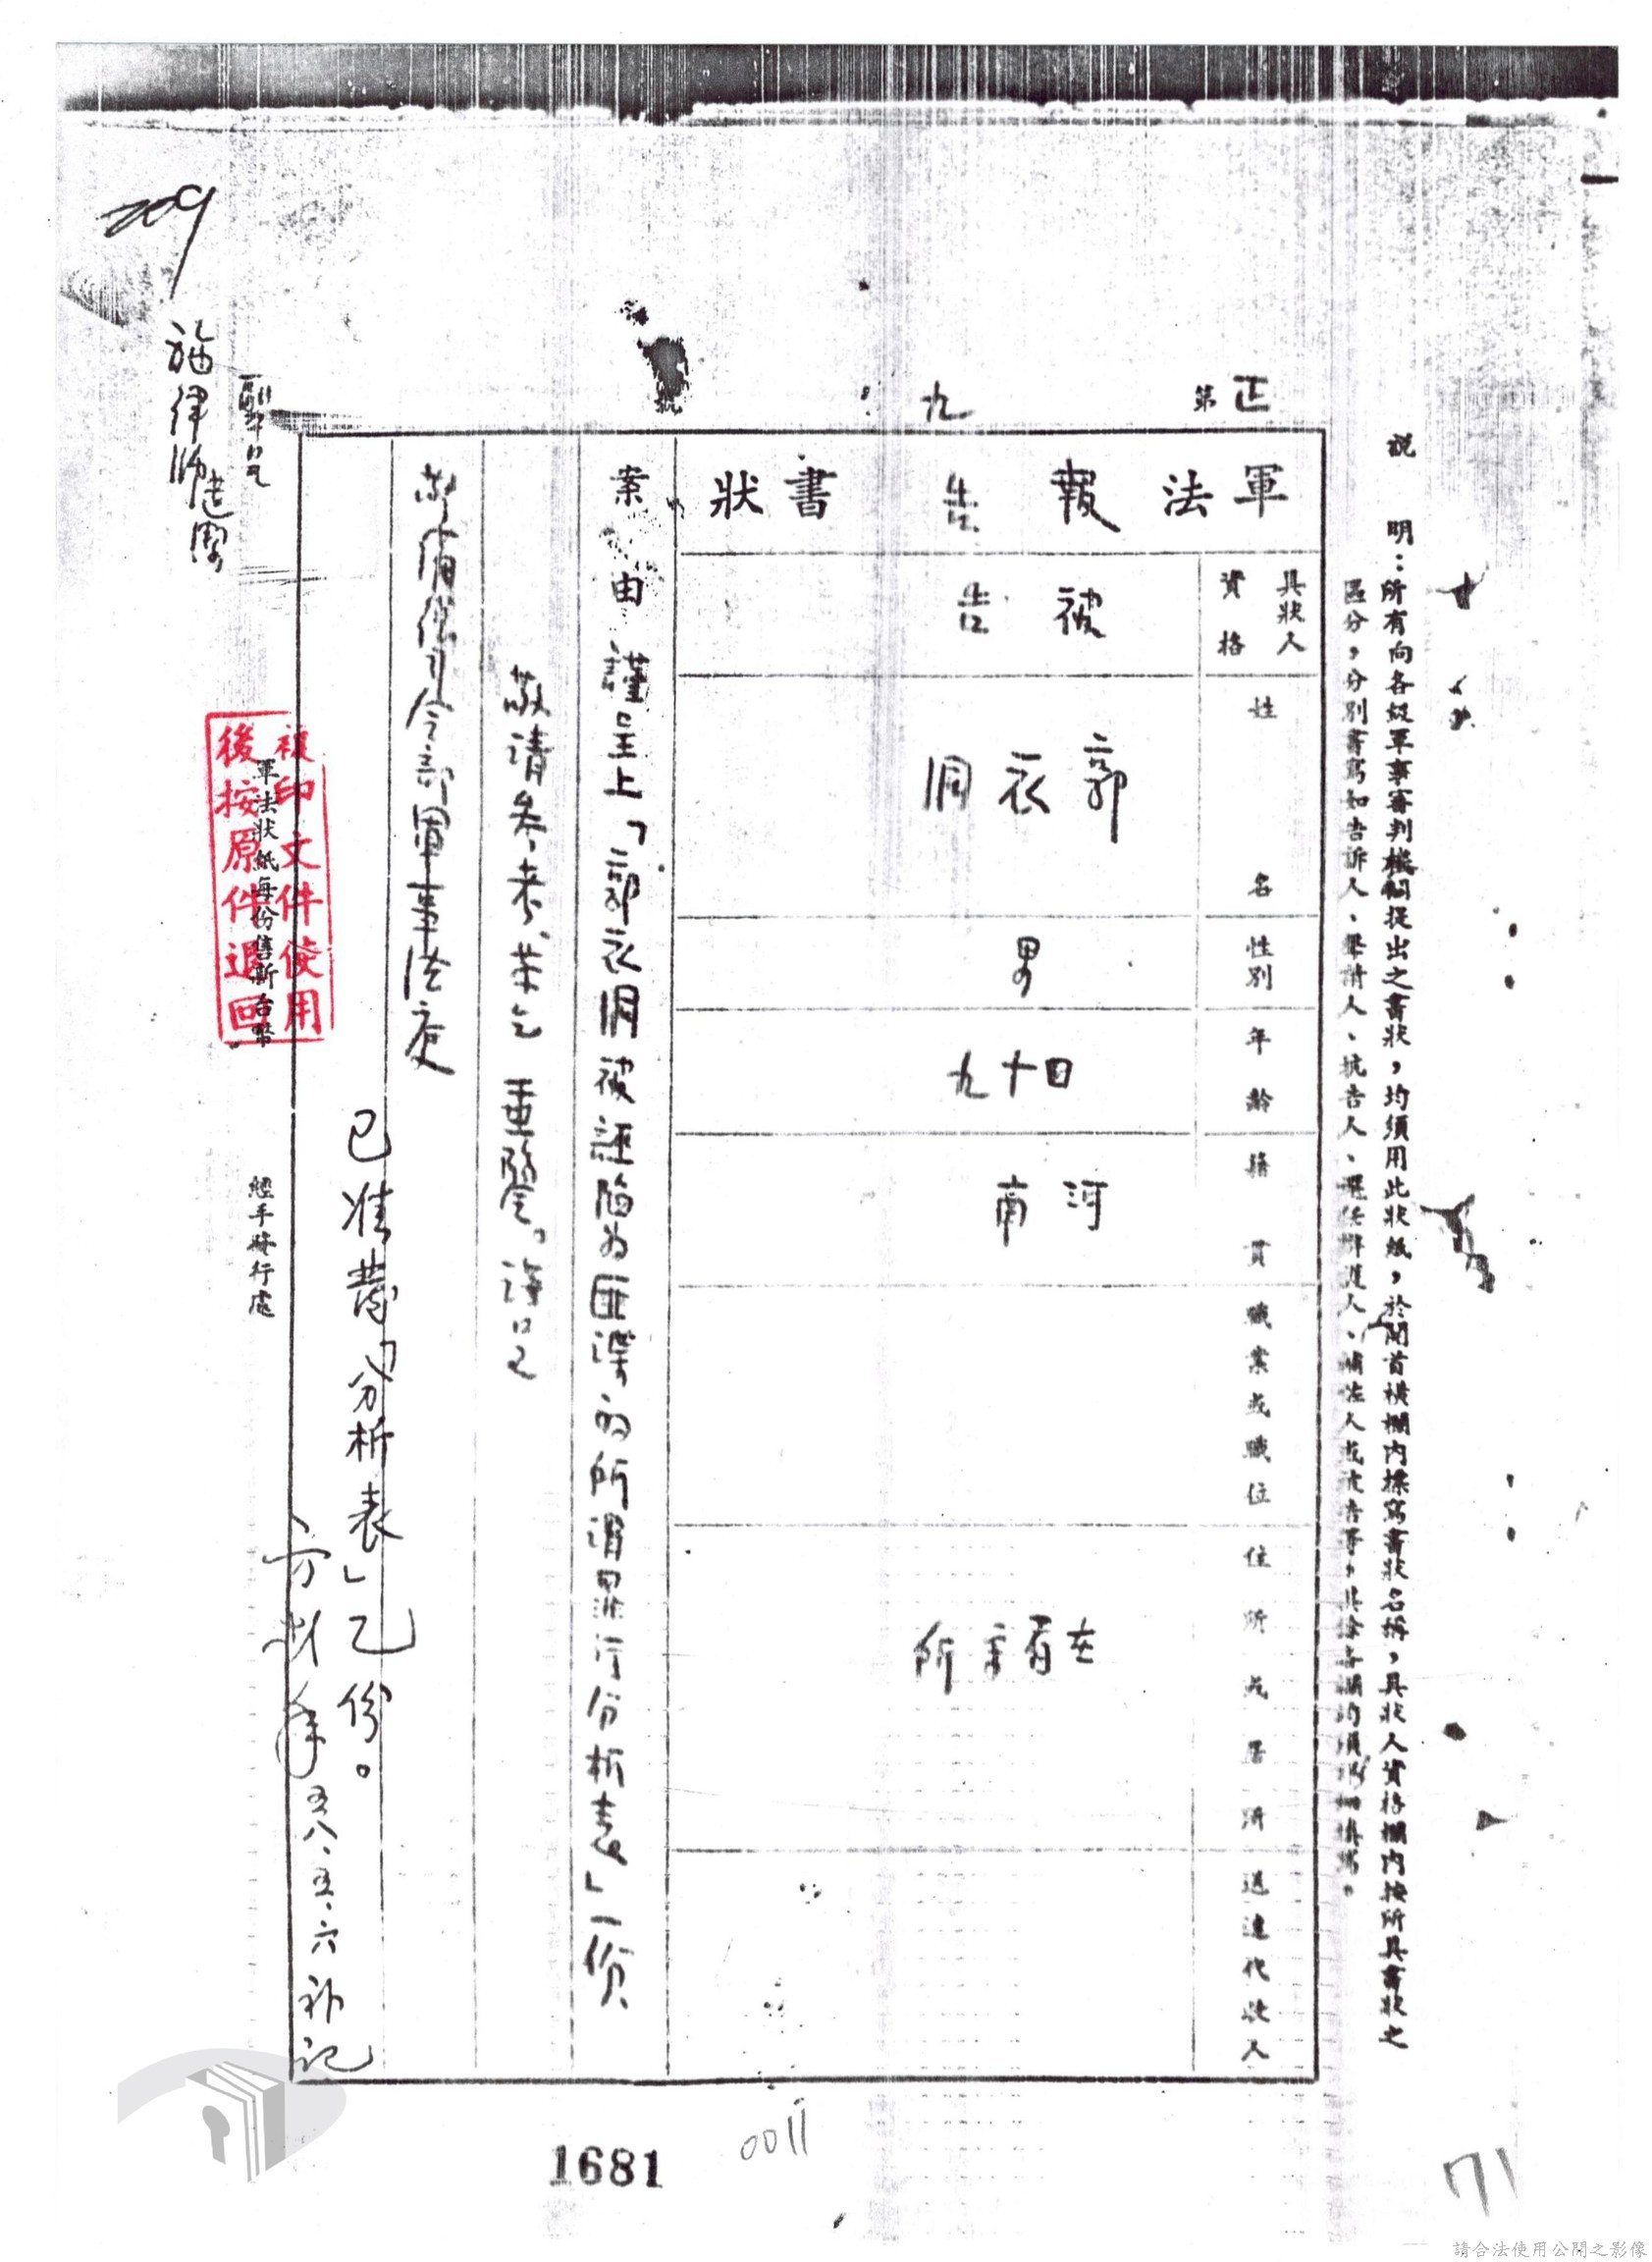 說明：所有向各級軍事審判機關提出之書狀，均須用此狀紙，於開首橫欄內標寫書狀名稱，具狀人資格欄內按所具書狀之
區分，分別書寫如告訴人、聲請人、抗告人、選任辯護人、輔佐人或被告等，其餘各欄均須詳細填寫。
正
第
九
號
軍法報告書狀
具狀人
資格
被告
姓名
郭衣洞
性別
男
年齡
四十九
籍貫
河南
職業或職位
住所或居所
在看守所
送達代收人
案由
謹呈上「郭衣洞被誣陷為匪諜的所謂罪行分析表」一份、
敬請參考、並乞 重閱。謹呈
警備總司令部軍事法庭
已准發「分析表」乙份。
五八、五、六補記
軍法狀紙每份售新台幣
經手發行處
複印文件使用
後按原件退回
施律師建
209
1681
0011
71
請合法使用公開之影像